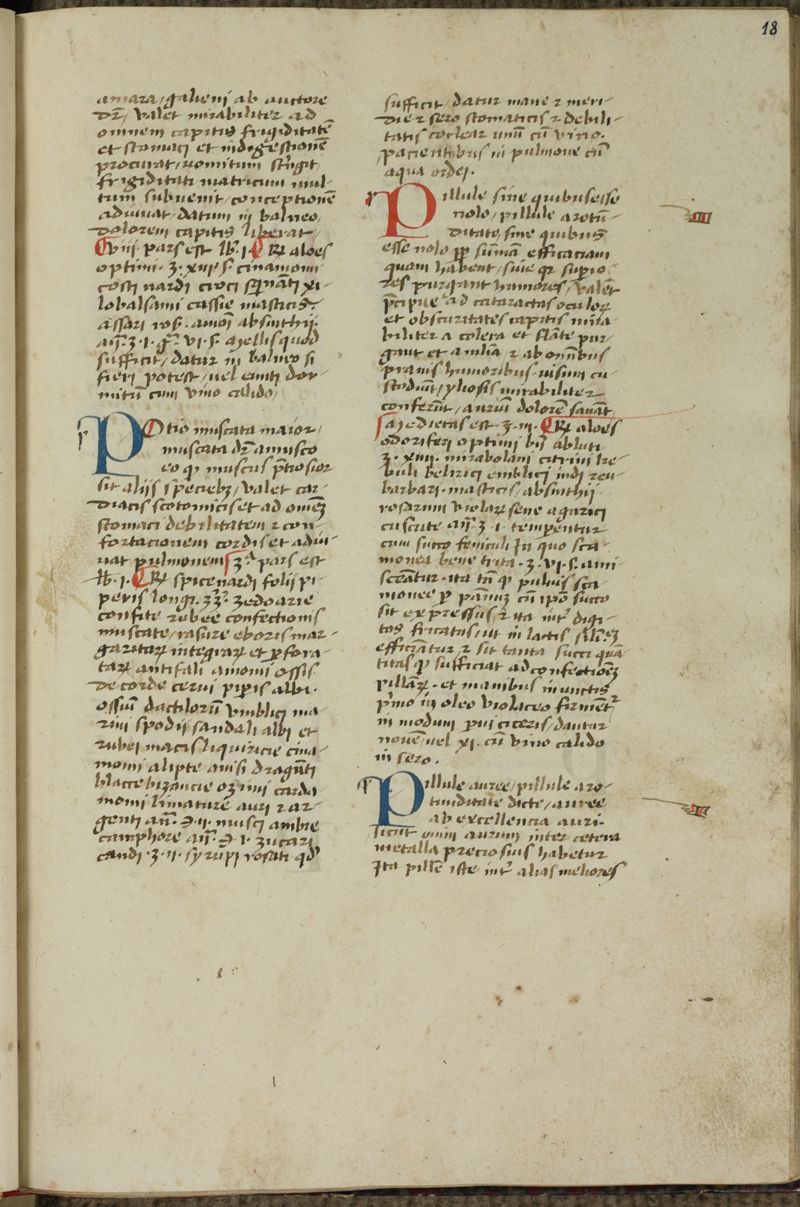 18
amara / galieni ab auctore
dr̄ / valet mirabiliter ad
omnem capitis frigiditatē
et stomaci et indigestionē
procurat / vomitum strīgit
frigiditati matricum mul-
tum subvenit / conceptionē
adiuvat / datum in balneo
dolorem capitis liberat /
pars est lb. i. R aloes
optimi ʒ. xiiii s. cinamomi
costi nardi croci xi-
lobalsami cassie masticis
assari ros. amomi absinthii
añ. ʒ. i. gr. vi. s. mellis quod
sufficit / datur in balneo si
fieri potest / vel eunti dor-
mitū cum vino calido /
Potio muscata maior /
muscata dr̄ a musco
eo qꝫ muscus p̄tiosior
sit aliis speciebꝫ / valet car-
diacis scotomicis et ad omēꝫ
stomaci debilitatem ⁊ con-
fortacionem cordis et adiu-
vat pulmonem ʒͣ pars est
lb. i. R spicenardi folii pi-
peris longi. zedoarie
confite rubee confectionis
muscate / rasure eboris mar-
garitaꝝ integraꝝ et ꝑfora-
taꝝ antifali amomi ossis
de corde cervi piꝑis albi.
ossiū dactiloꝝ emblici ma-
rini spodii sandali albi et
rubei macis liquiricie cina-
momi alipte anisi draganti
blacce bizancie ozimi carda
momi limature auri ⁊ ar-
genti añ. ℈. ii. musci ambre
camphore añ. ℈. i. zucari
candi. ʒ. ii. syrupi rosati qd̕
sufficit / datur mane ⁊ meri-
die ⁊ sero stomaticis ⁊ debili-
tatis coclear unū cū vino.
pacientibus in pulmone cū
aqua ordei.
Pillule sine quibus esse
nolo / pillule
sine quibus
esse nolo ꝓp sūmam efficaciam
quam habent / sive qꝫ supio-
res purgant humores / valēt
p̄cipue ad cataractas oculoꝝ
et obscuritates capitis mira
biliter a colera et flate pur-
gant et a mlīa ⁊ ab omībus
pravis humoribus visum cu-
stodiūt / yliosis mirabiliter
conferūt / auriū dolorē sanāt
medietas est. ʒ. iii. R aloes
odoriferi optimi bñ abluti
ʒ. xiiii. mirabolani citrini ke-
buli belirici emblici indi reu-
barbari. masticis / absinthii
rosarum violaꝝ sene agarici
cuscute añ ʒ i. temperentur
cum succo feniculi In quo sca-
monea bene trita. ʒ. vi. s. mi-
sceatur. ita tn̄ ꝙ pulvis sca-
monee ꝑ pannū cū ip̄o succo
sit expressus ⁊ ita int̕ digi-
tos fricatus / ut in lactis
efficiatur ⁊ sit tanta succi quā
titas ꝙ sufficiat ad confectionēꝫ
pillaꝝ. et manibus inunctis
p̄mo in oleo violaceo formēt̕
in modum pvi ciceris / dantur
novē / vel xi. cū vino calido
in sero.
Pillule auree / pillule
dicte / auree
ab excellencia auri.
sicut enim aurum inter cetera
metalla preciosius habetur
Ita pille iste int̕ alias meliores